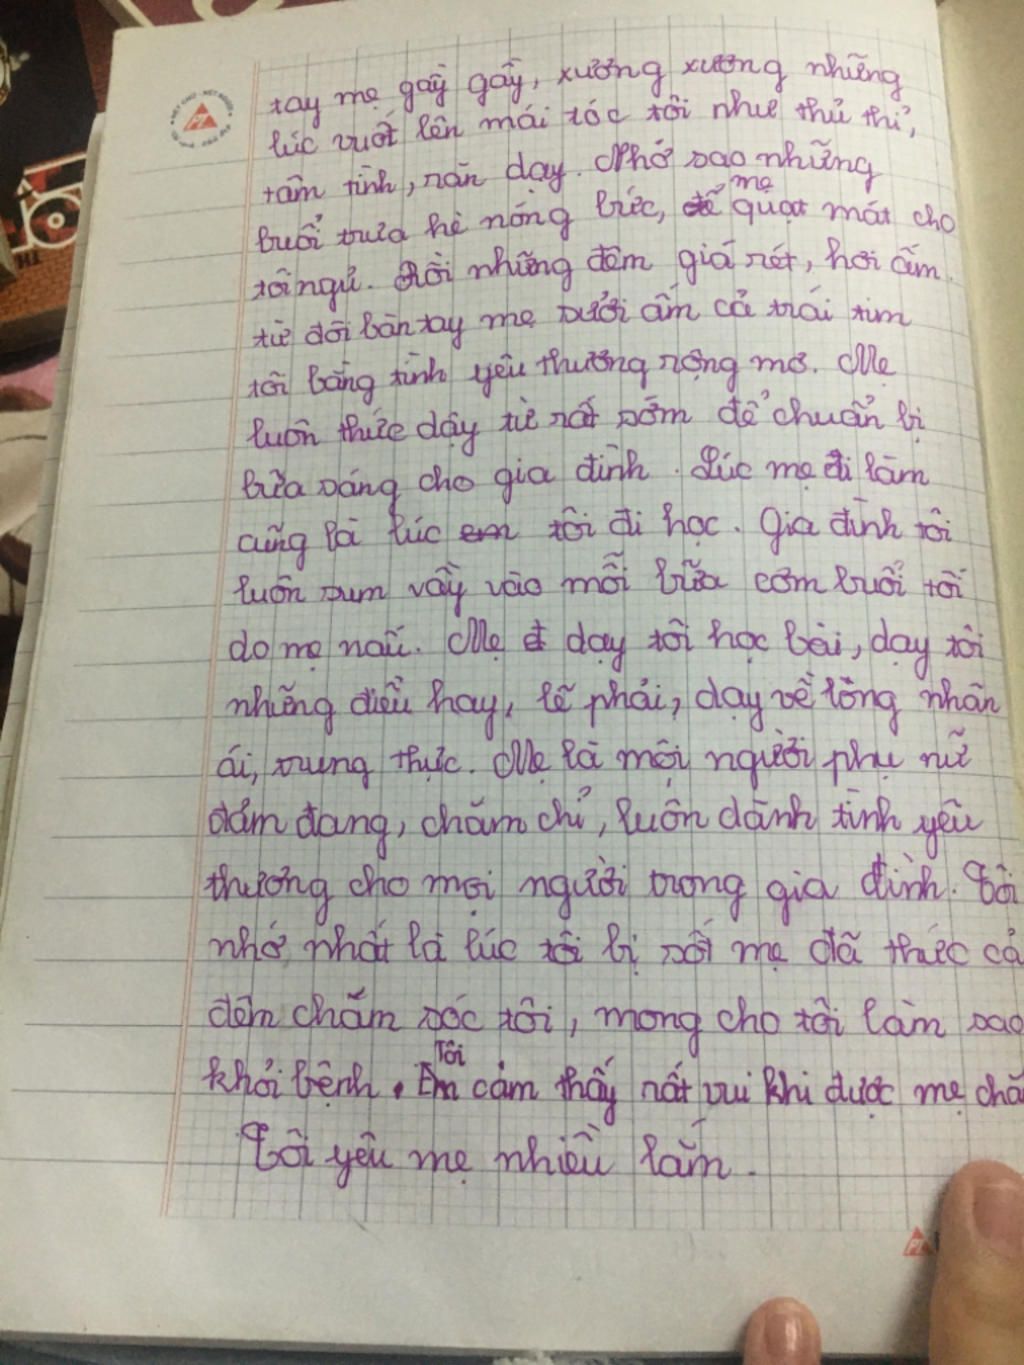 tay mẹ gầy gầy, xương xương những
lúc vuốt lên mái tóc tôi như thủ thỉ,
tâm tình, răn dạy. Nhớ sao những
buổi trưa hè nóng bức, mẹ quạt mát cho
tôi ngủ. Rồi những đêm giá rét, hơi ấm
từ đôi bàn tay mẹ sưởi ấm cả trái tim
tôi bằng tình yêu thương rộng mở. Mẹ
luôn thức dậy từ rất sớm để chuẩn bị
bữa sáng cho gia đình. Lúc mẹ đi làm
cũng là lúc tôi đi học. Gia đình tôi
luôn sum vầy vào mỗi bữa cơm buổi tối
do mẹ nấu. Mẹ dạy tôi học bài, dạy tôi
những điều hay, lẽ phải, dạy về lòng nhân
ái, trung thực. Mẹ là một người phụ nữ
đảm đang, chăm chỉ, luôn dành tình yêu
thương cho mọi người trong gia đình. Tôi
nhớ nhất là lúc tôi bị sốt mẹ đã thức cả
đêm chăm sóc tôi, mong cho tôi làm sao
khỏi bệnh. Tôi cảm thấy rất vui khi được mẹ chă
Tôi yêu mẹ nhiều lắm.